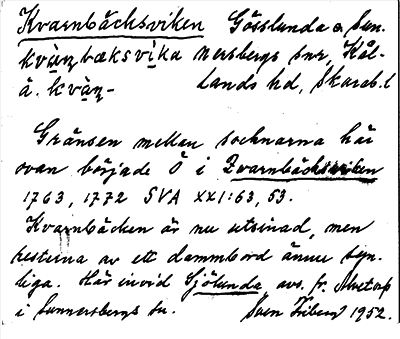 Kvarnbäcksviken Gösslunda o. Sun-
kvàn̥bæksvìka nersbergs snr, Kål-
ä. kvàn̥- lands hd, Skarab. l
Gränsen mellan socknarna här
ovan började Ö i Qvarnbäcksviken
1763, 1772 SVA XXI:63, 53.
Kvarnbäcken är nu utsinad, men
resterna av ett dammbord ännu syn-
liga. Här invid Sjölunda, avs. fr.
i Sunnersbergs sn. Sven Friberg 1952.